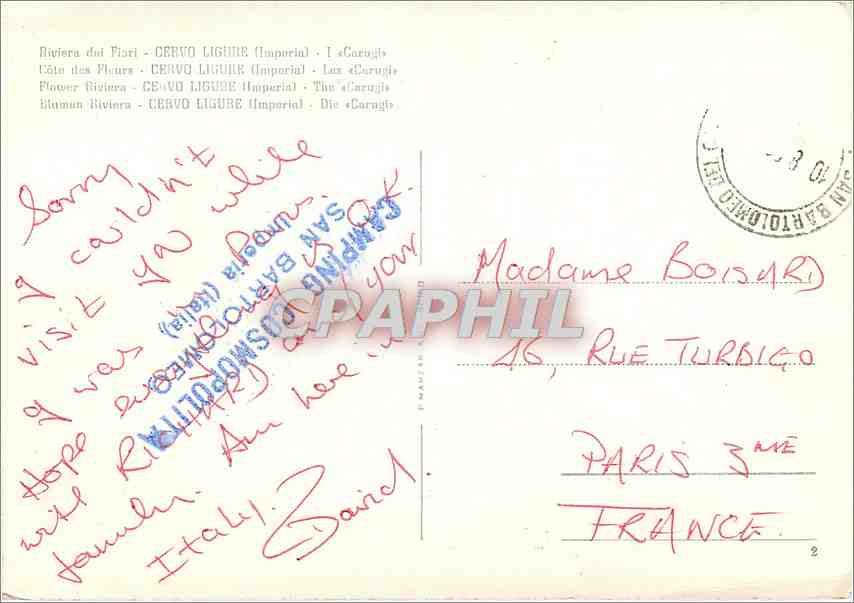 Riviera dei Fiori - CERVO LIGURE (Imperia) - I «Carugi»
Côte des Fleurs - CERVO LIGURE (Imperia) - Les «Carugi»
Flower Riviera - CERVO LIGURE (Imperia) - The «Carugi»
Blumen Riviera - CERVO LIGURE (Imperia) - Die «Carugi»
Sorry
I couldn't
visit you while
I was in Paris.
Hope everything is O.K.
with RICHARD and your
family. Am here in
Italy.
David
CAMPING COSMOPOLITA
SAN BARTOLOMEO
Imperia (Italia)
SAN BARTOLOMEO DEL
10 8
CPAPHIL
Madame BOISARD
46, RUE TURBIGO
PARIS 3me
FRANCE.
2